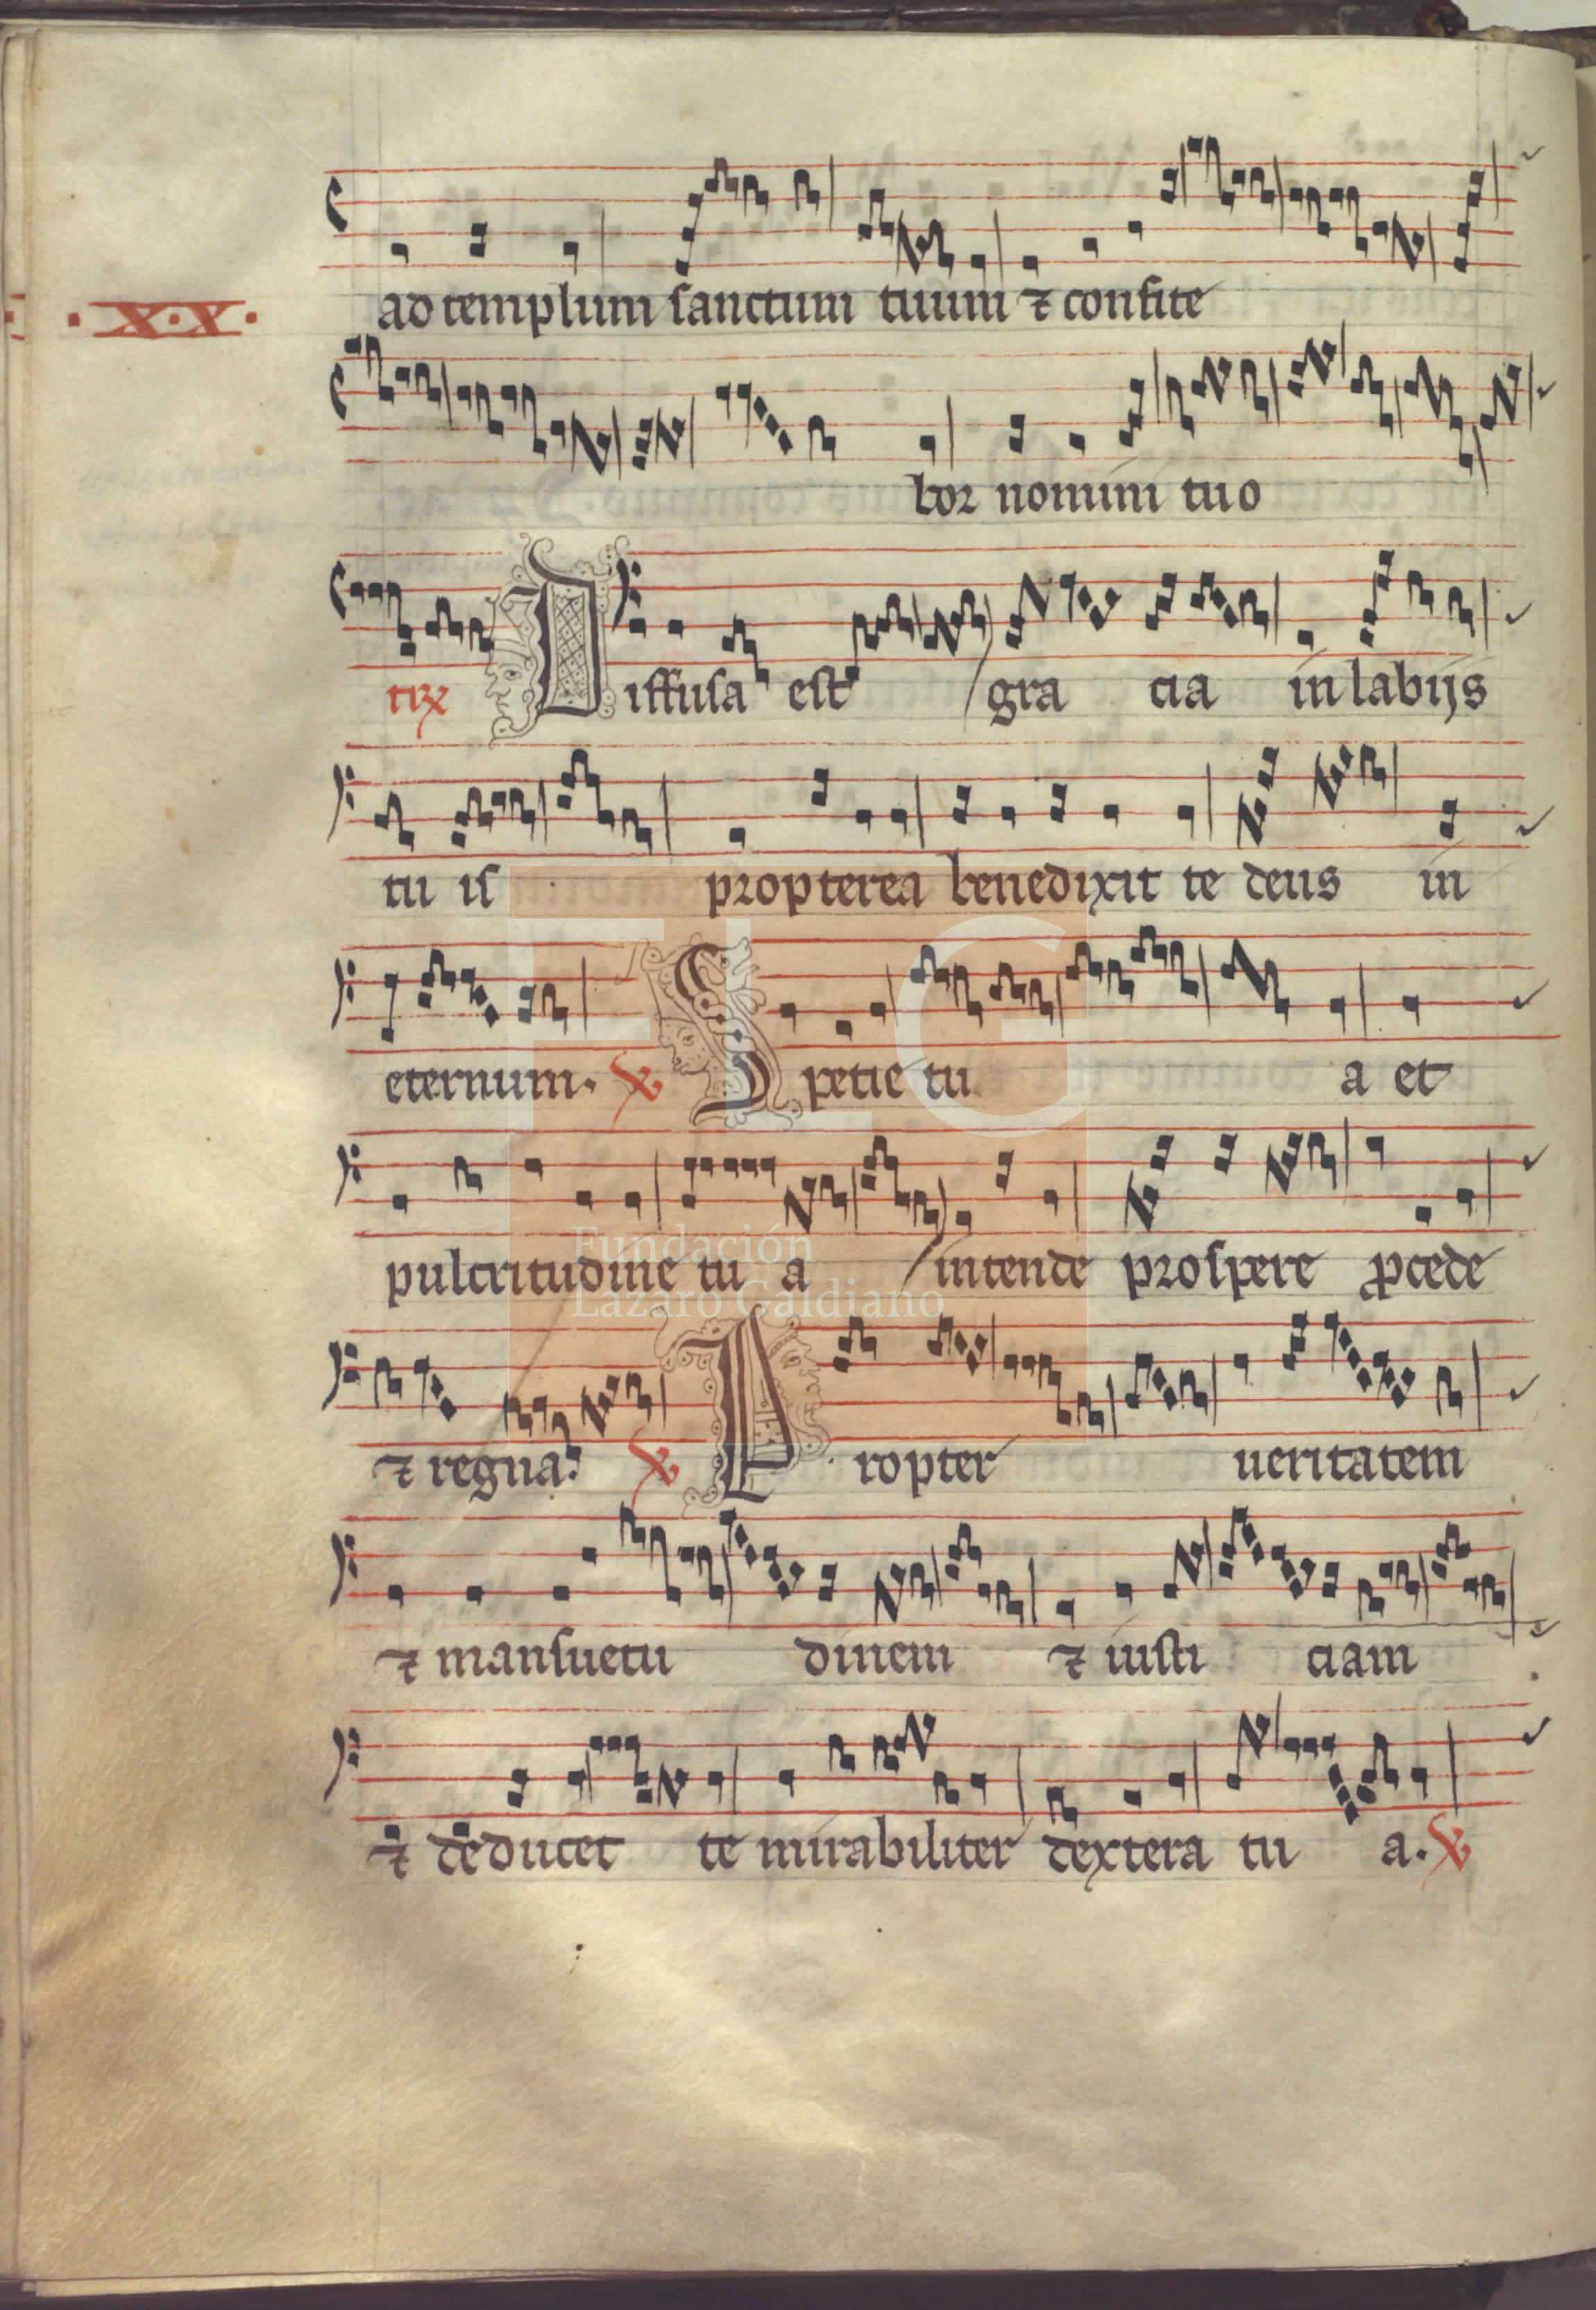 ad templum sanctum tuum ⁊ confite
·X·X·
bor nomini tuo
Diffusa est gra cia in labijs
tu is propterea benedixit te deus in
eternum. ℣ Spetie tu a et
pulcritudine tu a intende prospere ꝓcede
Fundación
Lázaro Galdiano
FLG
⁊ regna. ℣ Propter ueritatem
⁊ mansuetu dinem ⁊ iusti ciam
⁊ deducet te mirabiliter dextera tu a. ℣